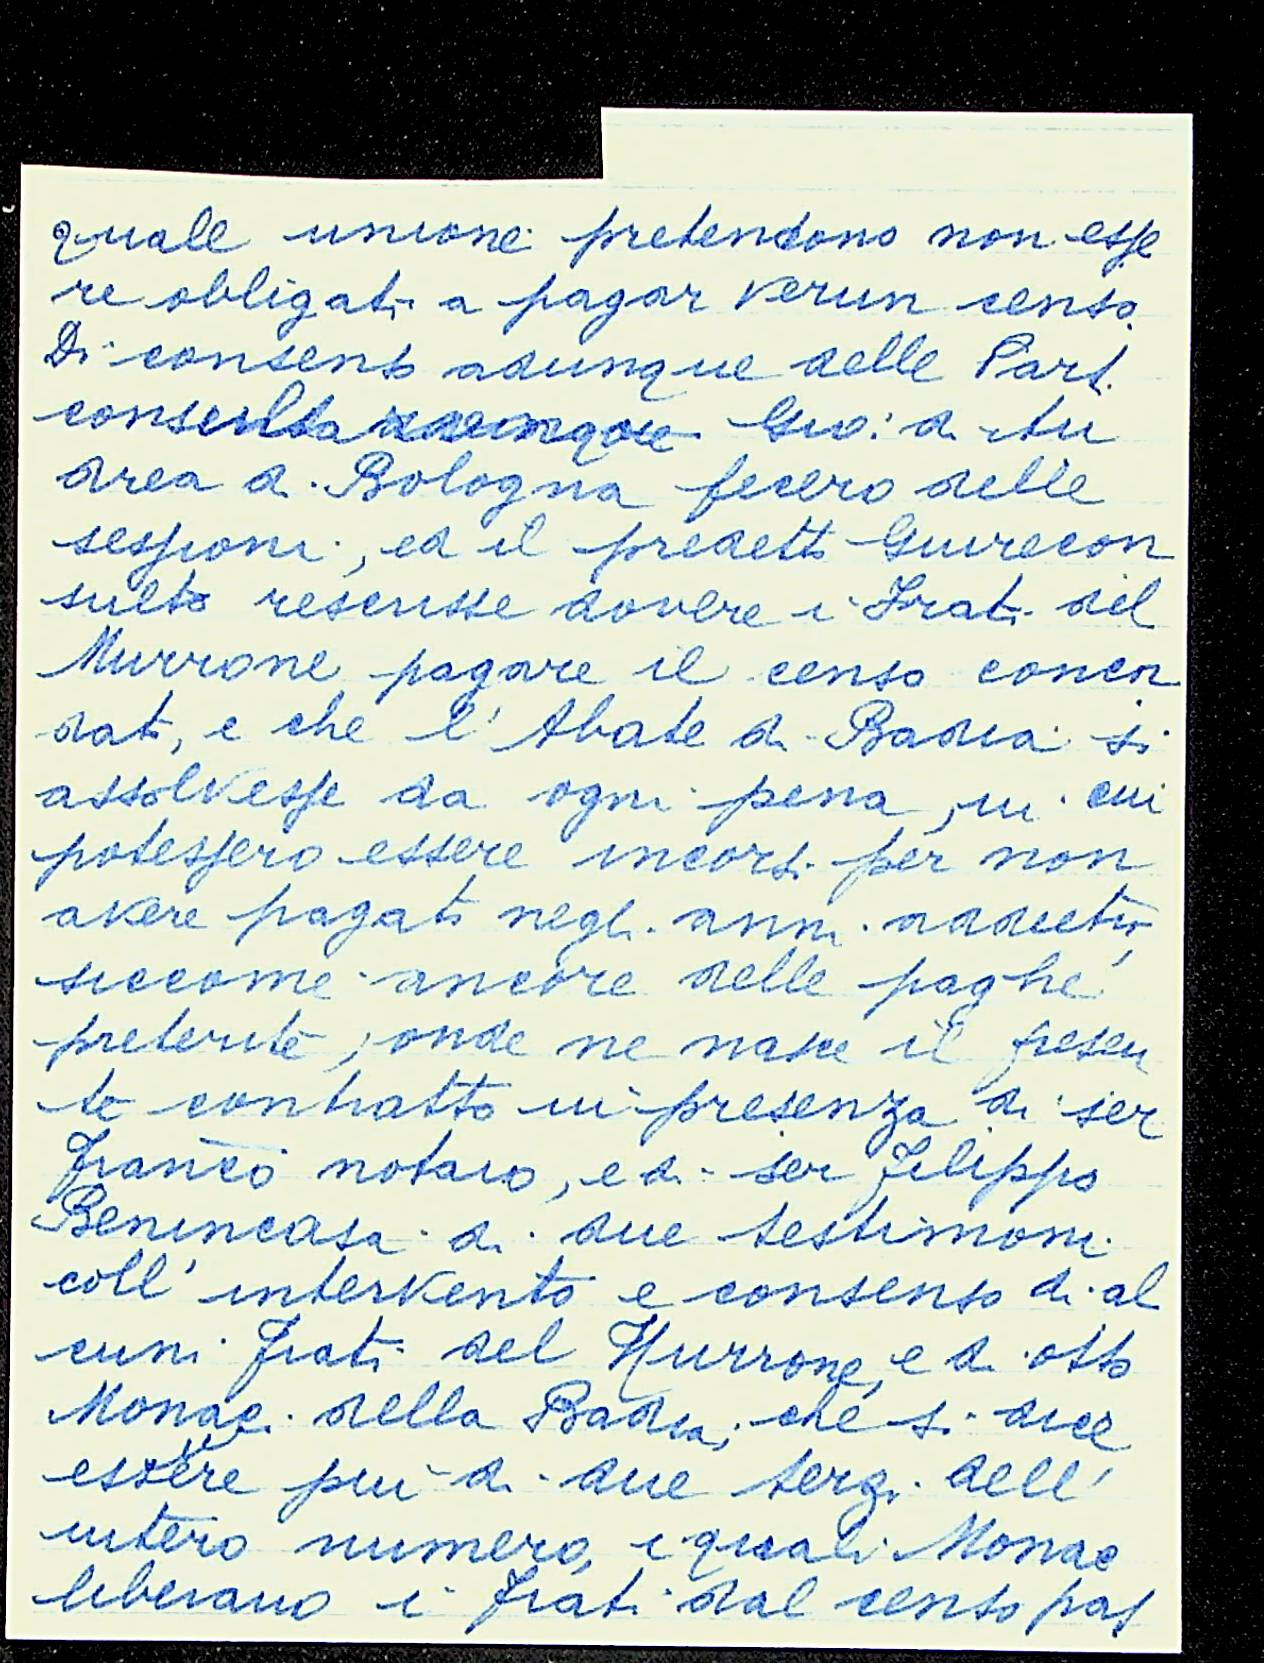 quale unione pretendono non esse
re obligati a pagar verun censo.
Di consenso adunque delle Parti
Gio: di An
drea di Bologna fecero delle
sessioni, ed il predetto Giurecon
sulto rescrisse dovere i Frati del
Murrone pagare il censo concor
dato, e che l' Abate di Badia si
assolvesse da ogni pena, in cui
potessero essere incorsi per non
avere pagato negli anni addietro,
siccome ancore delle paghe
preterite, onde ne nasce il presen
te contratto in presenza di ser
Franco notaio, e di ser Filippo
Benincasa di due testimoni
coll' intervento e consenso di al
cuni Frati del Murrone, e di otto
Monaci della Badia, che si dice
essere più di due terzi dell'
intero numero, i quali Monac
liberano i Frati dal censo pas